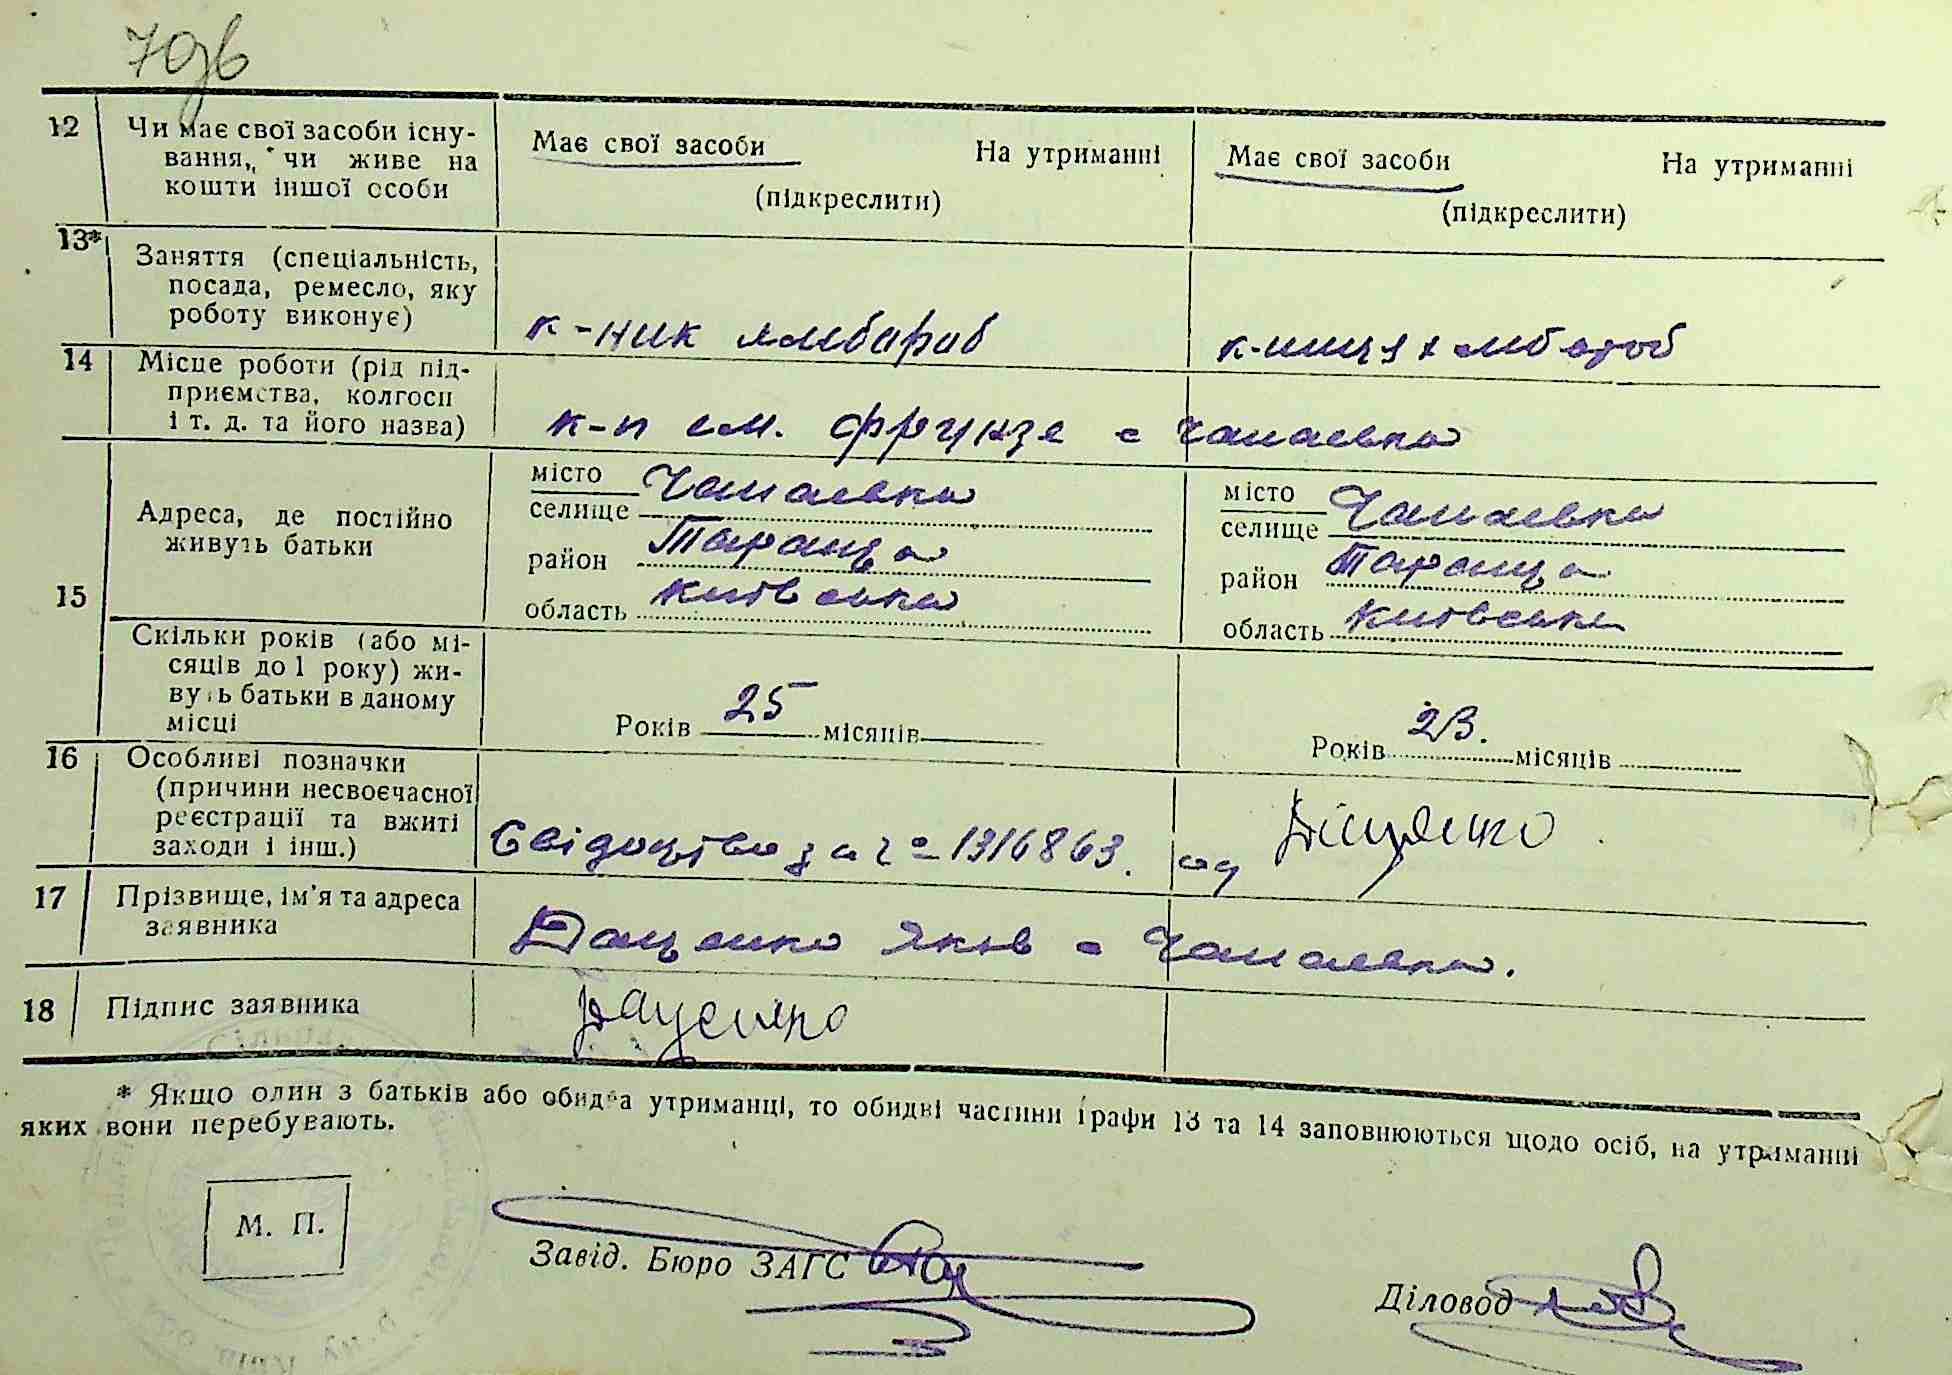 70зв
12 Чи має свої засоби існу-
вання, чи живе на
кошти іншої особи
Має свої засоби На утриманні
(підкреслити)
Має свої засоби На утриманні
(підкреслити)
13* Заняття (спеціальність,
посада, ремесло, яку
роботу виконує)
к-ник хлібороб
к-ниця хлібороб
14 Місце роботи (рід під-
приємства, колгосп
і т. д. та його назва)
к-п ім. Фрунзе с Чапаєвка
15 Адреса, де постійно
живуть батьки
місто
селище Чапаевка
район Тараща
область Київська
місто
селище Чапаевка
район Тараща
область Київська
Скільки років (або мі-
сяців до 1 року) жи-
вуть батьки в даному
місці
Років 25 місяців
Років 23. місяців
16 Особливі позначки
(причини несвоєчасної
реєстрації та вжиті
заходи і інш.)
Свідоцтво за № 1316863. од
17 Прізвище, ім'я та адреса
заявника
Даценко Яков с Чапаевка.
18 Підпис заявника
Даценко
* Якщо один з батьків або обидва утриманці, то обидві частини графи 13 та 14 заповнюються щодо осіб, на утриманні
яких вони перебувають.
М. П.
Завід. Бюро ЗАГС
Діловод